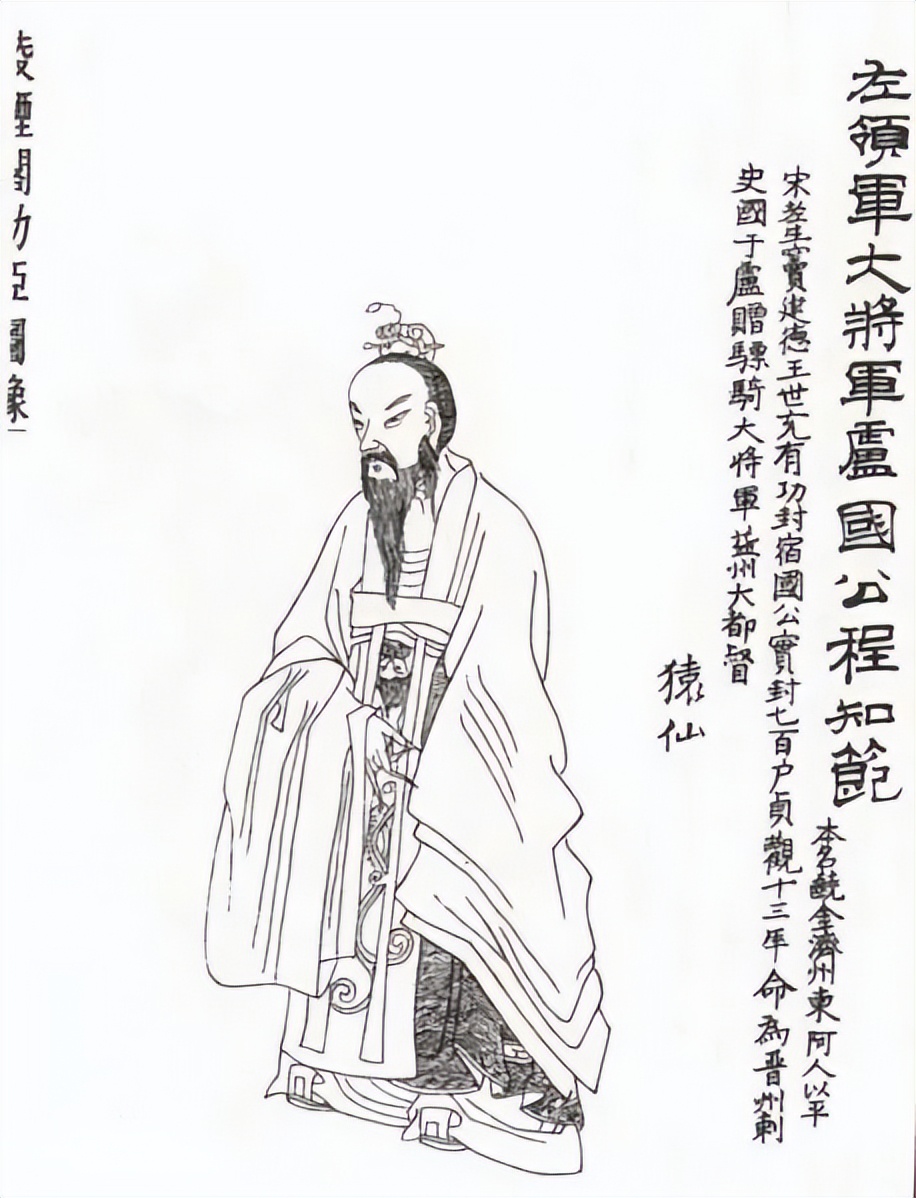 左領軍大將軍盧國公程知節
本名齩金濟州東阿人以平
宋老生竇建德王世充有功封宿國公實封七百户貞觀十三年命為晋州刺
史國于盧贈驃騎大将軍益州大都督
猿仙
凌煙閣功臣圖像